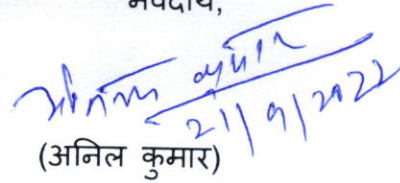 भवदीय,
अनिल कुमार
21/9/2022
(अनिल कुमार)